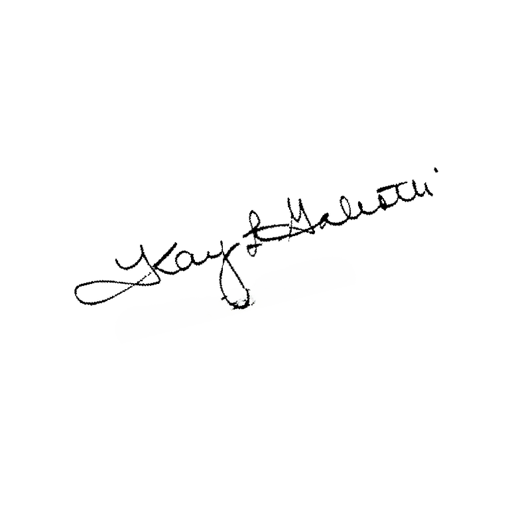 Kay L Galeotti